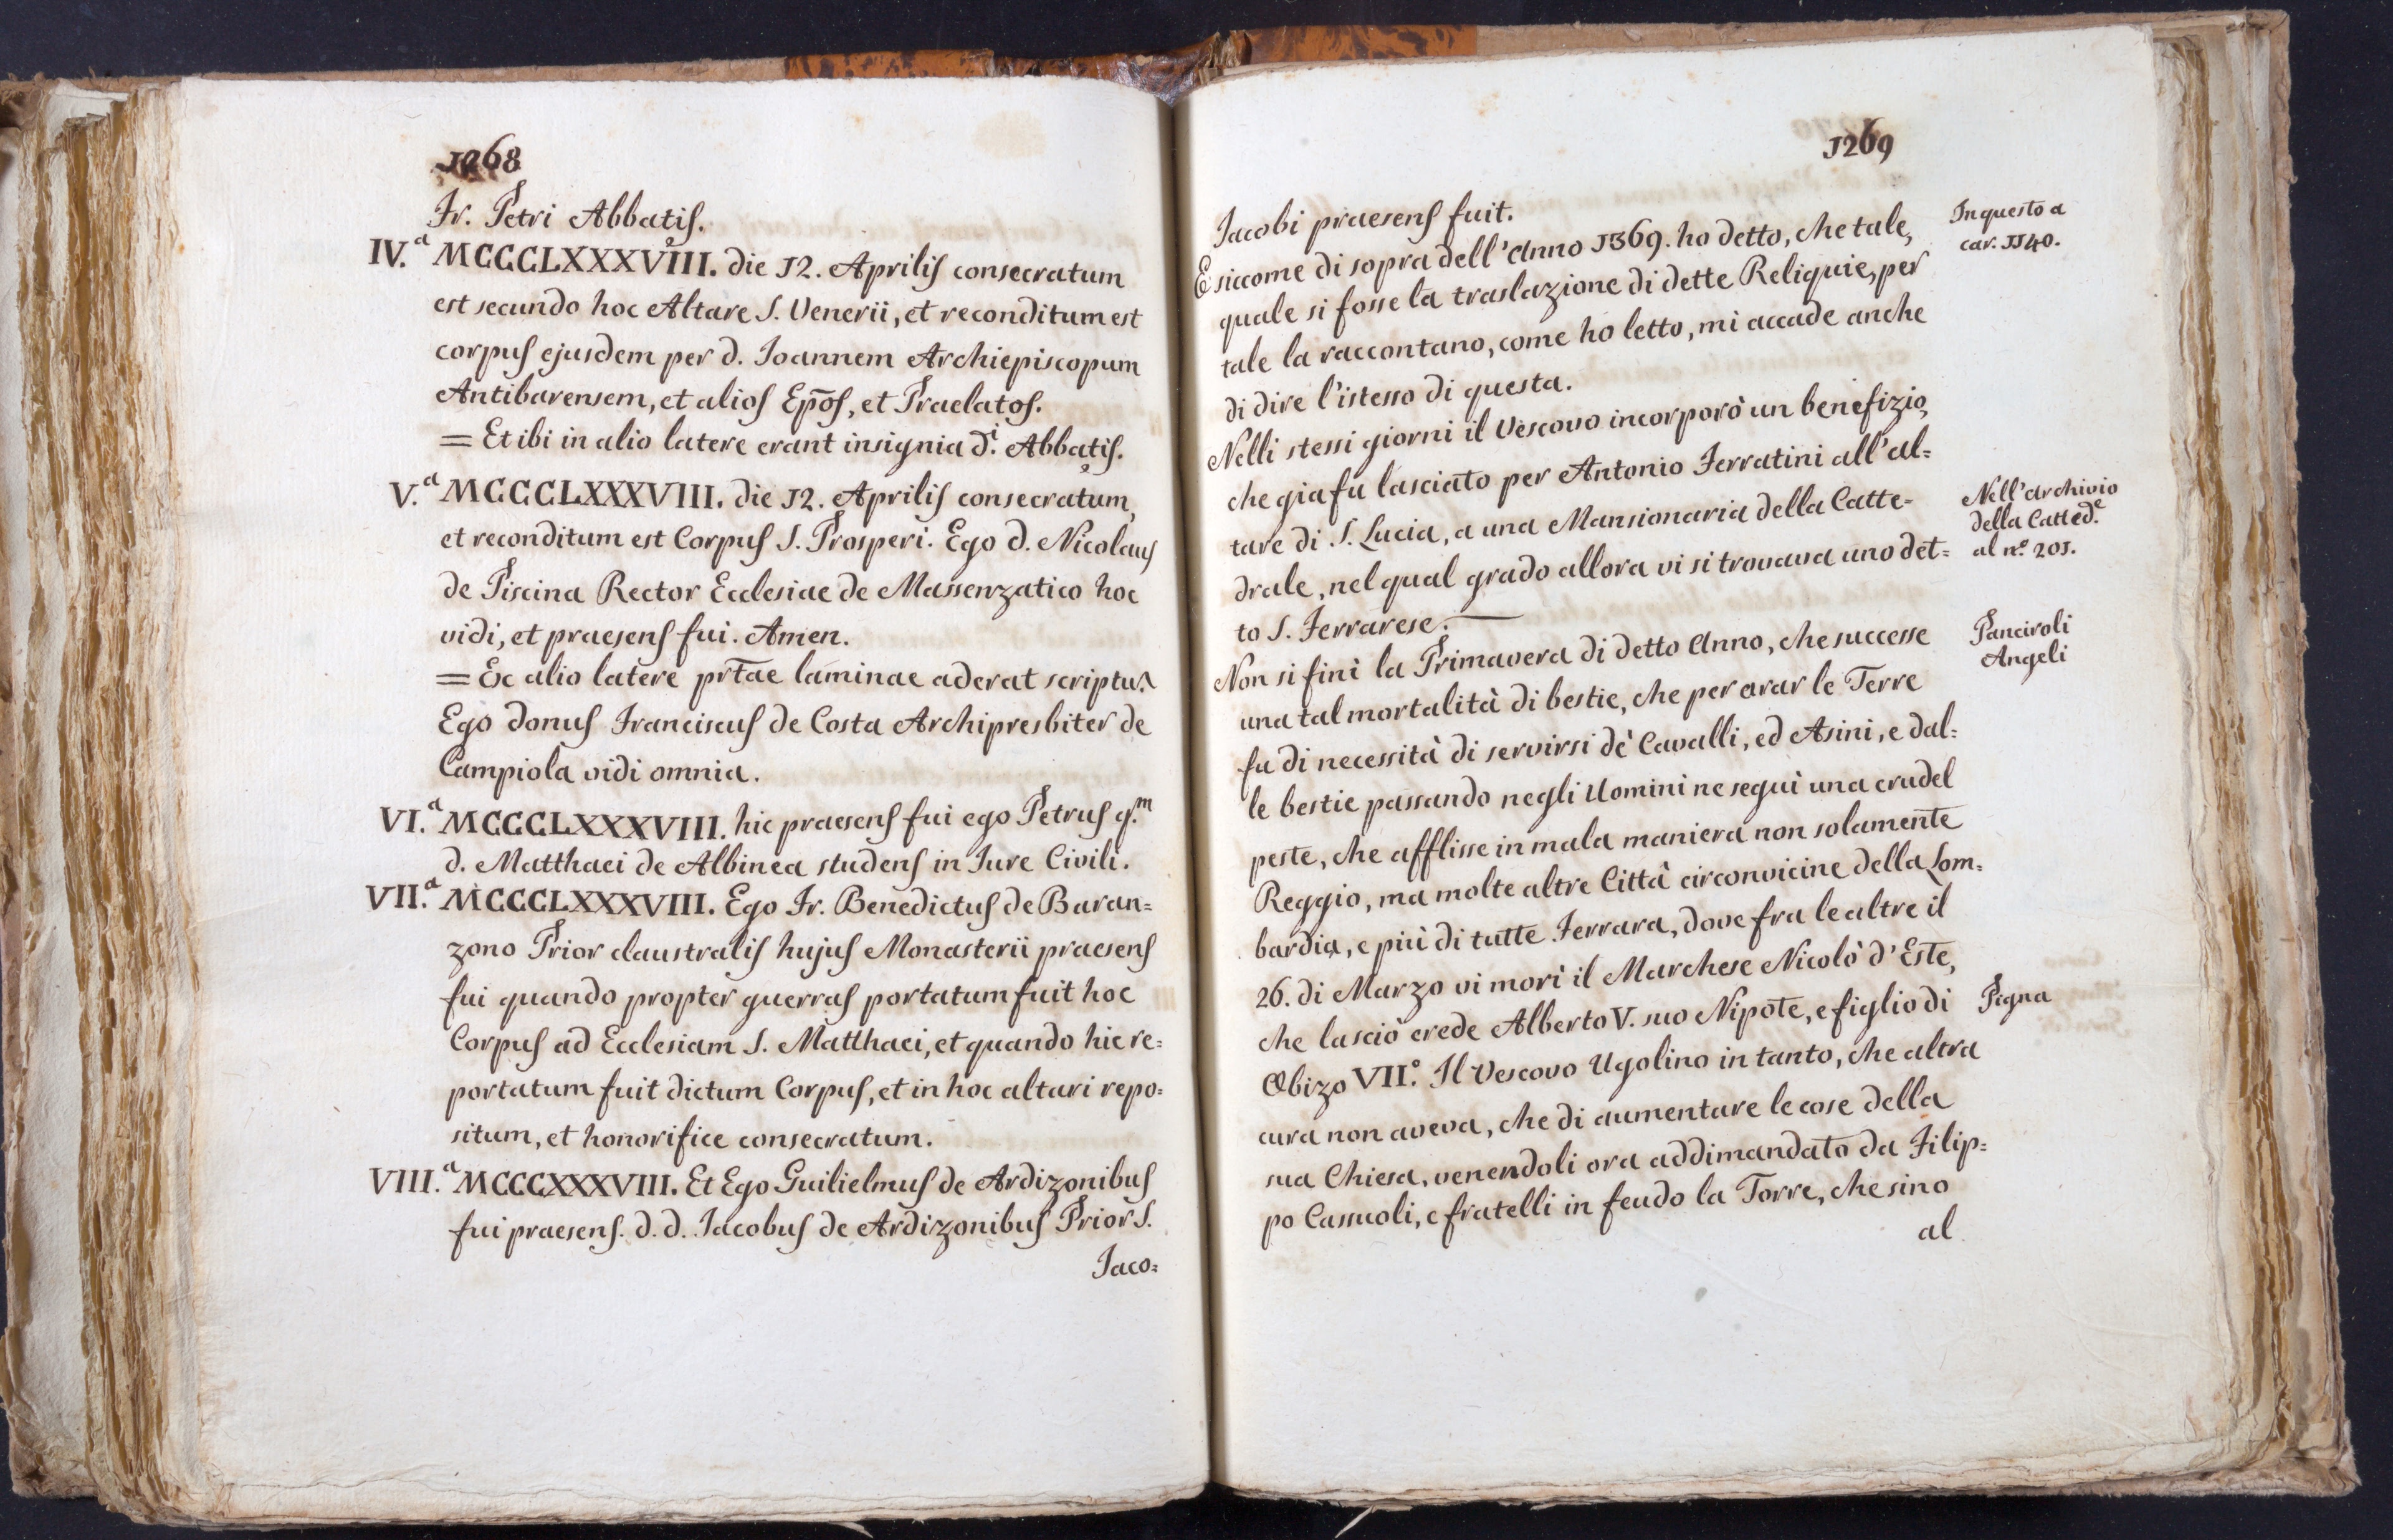 1268
Fr. Petri Abbatis.
IV.ª MCCCLXXXVIII. die 12. Aprilis consecratum
est secundo hoc Altare S. Venerii, et reconditum est
corpus ejusdem per d. Joannem Archiepiscopum
Antibarensem, et alios Ep̄os, et Praelatos.
= Et ibi in alio latere erant insignia d.i Abbatis.
V.ª MCCCLXXXVIII. die 12. Aprilis consecratum,
et reconditum est Corpus S. Prosperi. Ego d. Nicolaus
de Piscina Rector Ecclesiae de Massenzatico hoc
vidi, et praesens fui. Amen.
= Ex alio latere pr̄tae laminae aderat scriptu.
Ego donus Franciscus de Costa Archipresbiter de
Campiola vidi omnia.
VI.ª MCCCLXXXVIII. hic praesens fui ego Petrus q.m
d. Matthaei de Albinea studens in Jure Civili.
VII.ª MCCCLXXXVIII. Ego Fr. Benedictus de Baran=
zono Prior claustralis hujus Monasterii praesens
fui quando propter guerras portatum fuit hoc
Corpus ad Ecclesiam S. Matthaei, et quando hic re=
portatum fuit dictum Corpus, et in hoc altari repo=
situm, et honorifice consecratum.
VIII.ª MCCCXXXVIII. Et Ego Guilielmus de Ardizonibus
fui praesens. d. d. Jacobus de Ardizonibus Prior S.
Jaco=
1269
Jacobi praesens fuit.
E siccome di sopra dell'Anno 1369. ho detto, che tale,
quale si fosse la traslazione di dette Reliquie, per
tale la raccontano, come ho letto, mi accade anche
di dire l'istesso di questa.
Nelli stessi giorni il Vescovo incorporò un benefizio,
che gia fù lasciato per Antonio Ferratini all'al=
tare di S. Lucia, a una Mansionaria della Catte=
drale, nel qual grado allora vi si trovava uno det=
to S. Ferrarese.
Non si finì la Primavera di detto Anno, che successe
una tal mortalità di bestie, che per arar le Terre
fu di necessità di servirsi de' Cavalli, ed Asini, e dal=
le bestie passando negli Uomini ne seguì una crudel
peste, che afflisse in mala maniera non solamente
Reggio, ma molte altre Città circonvicine della Lom=
bardia, e più di tutte Ferrara, dove fra le altre il
26. di Marzo vi morì il Marchese Nicolò d'Este,
che lasciò erede Alberto V. suo Nipote, e figlio di
Obizo VII.º Il Vescovo Ugolino in tanto, che altra
cura non aveva, che di aumentare le cose della
sua Chiesa, venendoli ora addimandato da Filip=
po Cassuoli, e fratelli in feudo la Torre, che sino
al
In questo a
car. 1140.
Nell'Archivio
della Catted.e
al nº. 201.
Panciroli
Angeli
Pigna